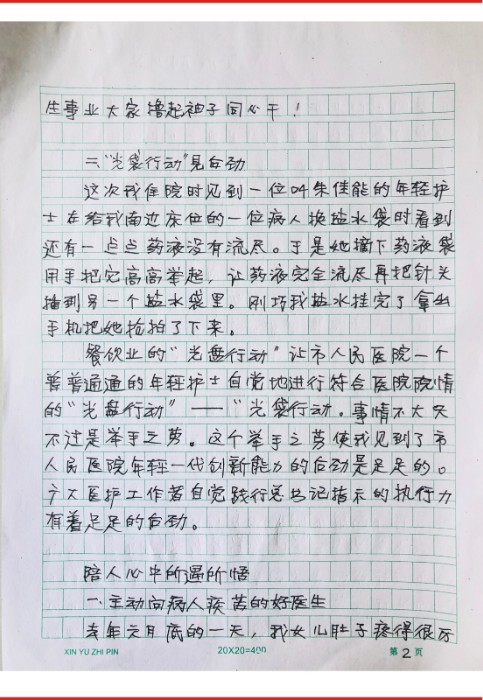 生事业大家撸起袖子同心干！
二、“光袋行动”见自动
这次我住院时见到一位叫朱佳能的年轻护
士在给我南边床位的一位病人换盐水袋时看到
还有一点点药液没有流尽。于是她摘下药液袋
用手把它高高举起，让药液完全流尽再把针头
插到另一个盐水袋里。刚巧我盐水挂完了拿出
手机把她抢拍了下来。
餐饮业的“光盘行动”让市人民医院一个
普普通通的年轻护士自觉地进行符合医院院情
的“光盘行动”——“光袋行动。事情不大只
不过是举手之劳。这个举手之劳使我见到了市
人民医院年轻一代创新能力的自动是足足的。
广大医护工作者自觉践行总书记指示的执行力
有着足足的自动。
陪人心中所遇所悟
一、主动问病人疾苦的好医生
去年六月底的一天，我女儿肚子疼得很厉
XIN YU ZHI PIN
20X20=400
第2页